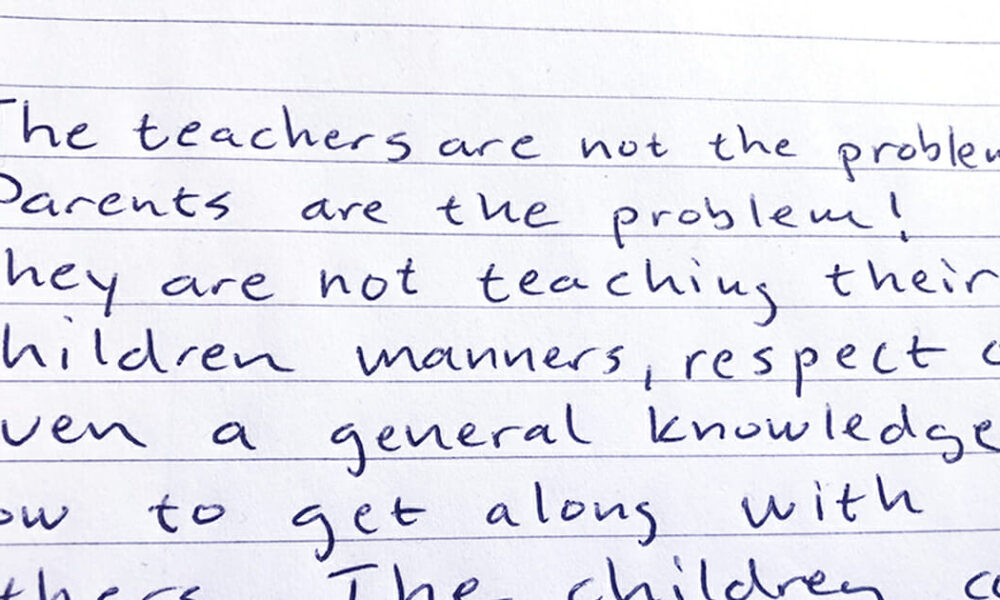 The teachers are not the problem
Parents are the problem!
hey are not teaching their
hildren manners, respect
ven a general knowledge
ow to get along with
thers. The children